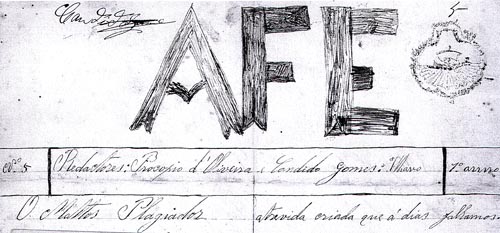 5
AFE
Nº 5 Redactores: Prosopio d'Oliveira e Candido Gomes: Ilhavo 1º anno
O Mattos Plagiador
atrevida criada que á dias fallamos.